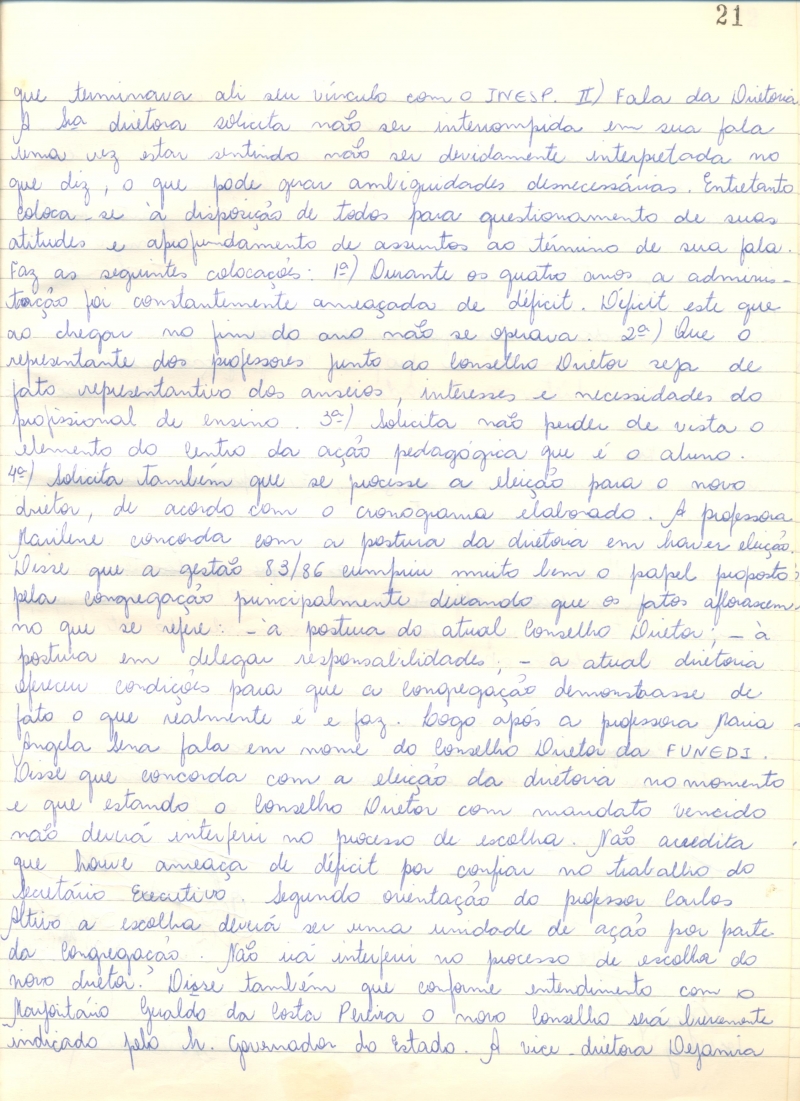 21
que terminava ali seu vínculo com o INESP. II) Fala da Diretoria
A Sra diretora solicita não ser interrompida em sua fala
uma vez estar sentindo não ser devidamente interpretada no
que diz, o que pode gerar ambiguidades desnecessárias. Entretanto
coloca-se à disposição de todos para questionamento de suas
atitudes e aprofundamento de assuntos ao término de sua fala.
Faz as seguintes colocações: 1ª) Durante os quatro anos a adminis-
tração foi constantemente ameaçada de déficit. Déficit este que
ao chegar no fim do ano não se operava. 2ª) Que o
representante dos professores junto ao Conselho Diretor seja de
fato representantivo dos anseios, interesses e necessidades do
profissional de ensino. 3ª) Solicita não perder de vista o
elemento do centro da ação pedagógica que é o aluno.
4ª) Solicita também que se processe a eleição para o novo
diretor, de acordo com o cronograma elaborado. A professora
Marilene concorda com a postura da diretoria em haver eleição.
Disse que a gestão 83/86 cumpriu muito bem o papel proposto
pela congregação principalmente deixando que os fatos aflorassem
no que se refere: - à postura do atual Conselho Diretor; - à
postura em delegar responsabilidades; - a atual diretoria
ofereceu condições para que a congregação demonstrasse de
fato o que realmente é e faz. Logo após a professora Maria
Ângela Sena fala em nome do Conselho Diretor da FUNEDI.
Disse que concorda com a eleição da diretoria no momento
e que estando o Conselho Diretor com mandato vencido
não deverá interferir no processo de escolha. Não acredita
que houve ameaça de déficit por confiar no trabalho do
Secretário Executivo. Segundo orientação do professor Carlos
Altivo a escolha deverá ser uma unidade de ação por parte
da Congregação. Não irá interferir no processo de escolha do
novo diretor. Disse também que conforme entendimento com o
Marjoritário Geraldo da Costa Pereira o novo Conselho será brevemente
indicado pelo Governador do Estado. A vice-diretora Dejanira